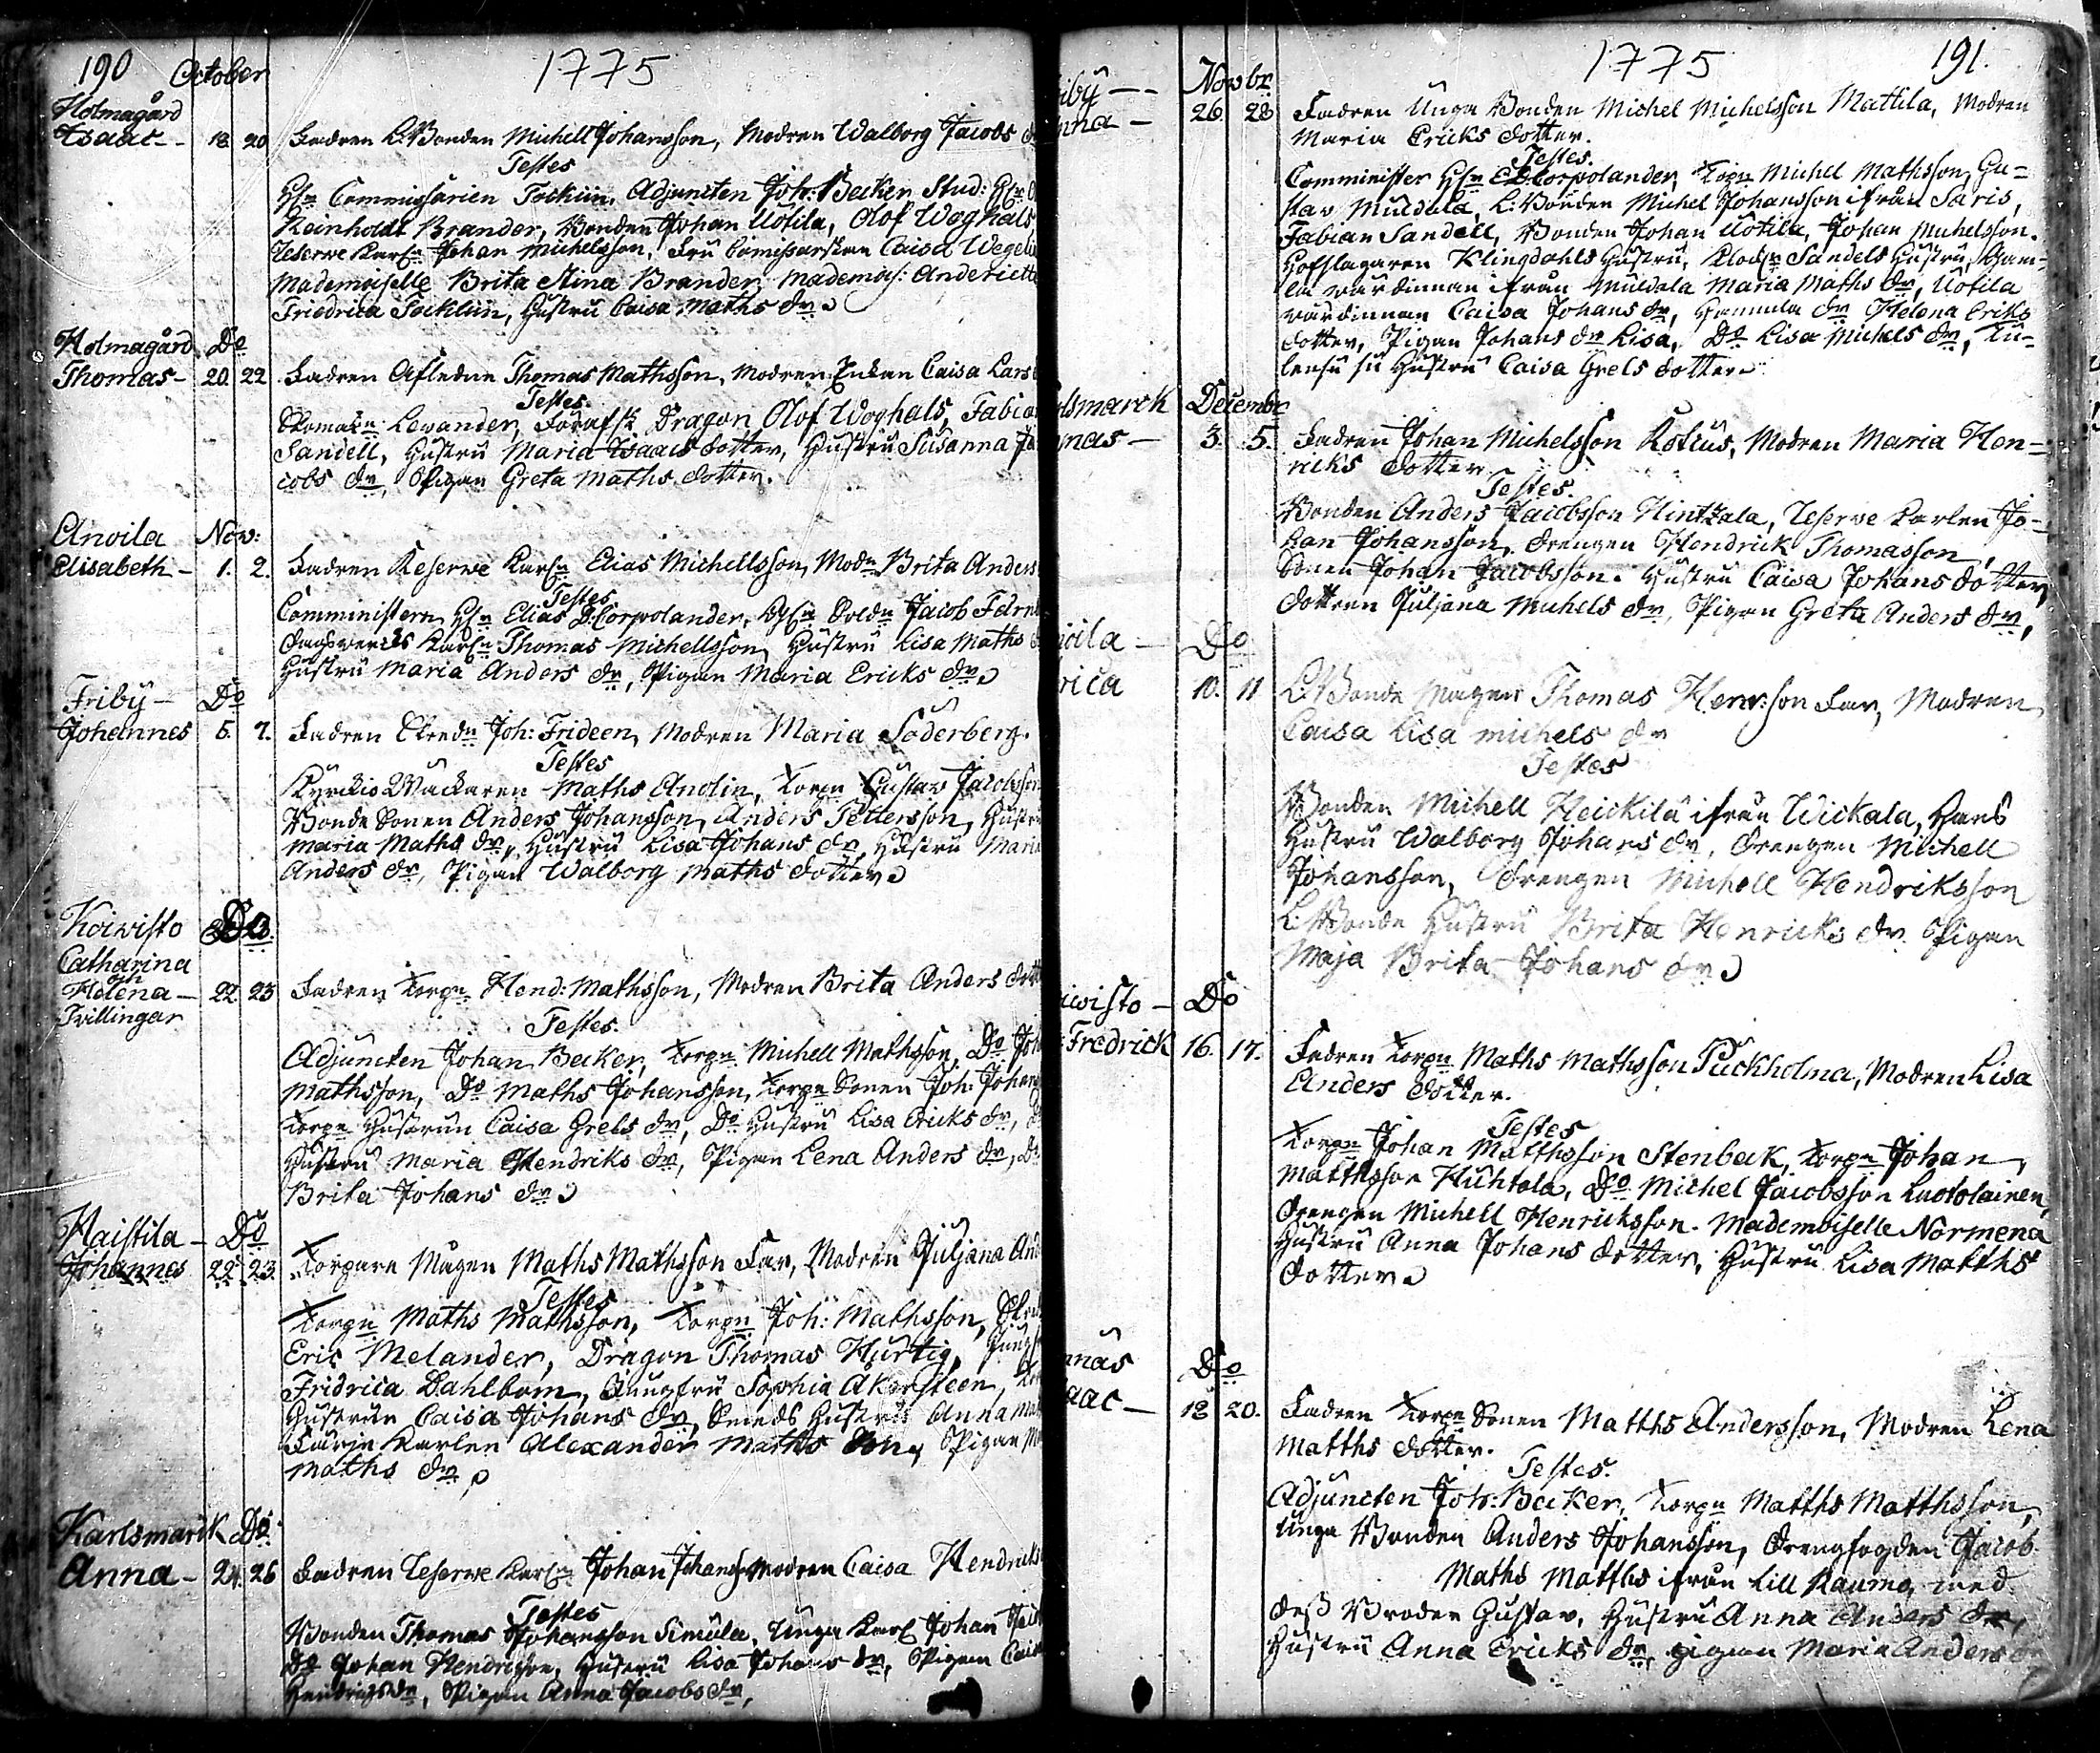 190 October 1775
Holmagård
Isaac - 18 20 Fadren L: Bonden Michell Johansson, Modren Walborg Jacobs
Testes
Commissarien Tocklin, Adjuncten Joh: Becker, Stud:
Reinhold Brander, Bonden Johan Uotila, Olof Woghals
Reserve Karln Johan Michelsson, Fru Comissarskan Caisa Wegeli
Mademoiselle Brita Stina Brander, Mademois: Anderiette
Friedrica Tocklin, Hustru Caisa Maths dr
Holmagård Do
Thomas - 20 22 Fadren Afledne Thomas Mathsson, Modren Enkan Caisa Lars
Testes.
Lewander, Dragon Olof Woghals, Fabian
Sandell, Hustru Maria Isaacs dotter, Hustru Susanna Ja
cobs dr, Pigan Greta Maths dotter.
Anoila Nov:
Elisabeth - 1. 2. Fadren Reserwe Karln Elias Michellsson, Modn Brita Anders
Testes
Comministern Hrn Elias B. Corpolander, Jacob
dagsverks Karln Thomas Michellsson, Hustru Lisa Maths
Hustru Maria Anders dr, Pigan Maria Ericks dr
Friby - Do
Johannes 5. 7. Fadren Joh: Frideen, Modren Maria Söderberg.
Testes
Kyrckio Wäcktaren Maths Anolin, Torpn Gustav Jacobsson
Bonde Sonen Anders Johansson, Anders Pettersson, Hustru
Maria Maths dr, Hustru Lisa Johans dr, Hustru Maria
Anders dr, Pigan Walborg Maths dotter
Koivisto Do
Catharina
och
Helena - 22 23 Fadren Torpn Hend: Mathsson, Modren Brita Anders dott
Tvillingar
Testes.
Adjuncten Johan Becker, Torpn Michell Mathsson, Do Joh
Mathsson, Do Maths Johansson, Torpn Sonen Joh: Johans
Torpn Hustrun Caisa Grels dr, Do Hustru Lisa Ericks dr,
Hustru Maria Hendriks dr, Pigan Lena Anders dr, Do
Brita Johans dr
Haistila - Do
Johannes 22 23. Torpare Mågen Maths Mathsson Far, Modren Juljana And
Testes
Torpn Maths Mathsson, Torpn Joh: Mathsson,
Eric Melander, Dragon Thomas Hurtig, Jungfr
Fridrica Dahlbom, Jungfru Sophia Åkersteen,
Hustrun Caisa Johans dr, Smeds Hustru Anna Ma
Karlen Alexander Maths Son, Pigan
Maths dr
Karlsmark Do
Anna - 24. 26 Fadren Reserwe Karln Johan Johansson Modren Caisa Hendricks
Testes
Bonden Thomas Johansson Simula, Unga Karl Johan
Do Johan Hendricsson, Hustru Lisa Johans dr, Pigan Cais
Hendrics dr, Pigan Anna Jacobs dr,
1775 191.
iby - Novbr.
nna - 26. 28 Fadren Unga Bonden Michel Michelsson Mattila, Modren
Maria Ericks dotter.
Testes.
Comminister Hrn E. B. Corpolander, Torpn Michel Mathsson, Gu=
stav Muldola, L: Bonden Michel Johansson ifrån Saris,
Fabian Sandell, Bonden Johan Uotila, Johan Michelsson.
Hofslagaren Klingdahls Hustru, Sandels Hustru, Gam=
la wärdinnan ifrån Muldola Maria Maths dr, Uotila
wärdinnan Caisa Johans dr, Hannula dr Helena Eriks
dotter, Pigan Johans dr Lisa, Do Lisa Michels dr,
Hustru Caisa Grels dotter
lsmarck Decembr
mas - 3. 5. Fadren Johan Michelsson Rotius, Modren Maria Hen=
ricks dotter
Testes.
Bonden Anders Jacobsson Hintzala, Reserve Karlen Jo=
han Johansson, drengen Hendrick Thomasson,
Sonen Johan Jacobsson. Hustru Caisa Johans dotter,
dottren Juljana Michels dr, Pigan Greta Anders dr,
oila - Do
rica 10. 11 L: Bonde Mågen Thomas Henr:son Far, Modren
Caisa Lisa Michels dr
Testes
Bonden Michell Heickilä ifrån Wickala, Hans
Hustru Walborg Johans dr, drengen Michell
Johansson, drengen Michell Hendriksson
L: Bonde Hustru Brita Henricks dr Pigan
Maja Brita Johans dr
ivisto - Do
Fredrick 16. 17. Fadren Torpn Maths Mathsson Puckholma, Modren Lisa
Anders dotter.
Testes
Torpn Johan Matthsson Stenbeck, Torpn Johan
Matthsson Huhtala, Do Michel Jacobsson Luotolainen,
drengen Michell Henricksson. Mademoiselle Normena
Hustru Anna Johans dotter, Hustru Lisa Matths
dotter
nnäs Do
aac - 18 20. Fadren Torpn Sonen Matths Andersson, Modren Lena
Matths dotter.
Testes.
Adjuncten Joh: Becker, Torpn Matths Matthsson,
Unga Bonden Anders Johansson, drengfogden Jacob
Maths Matths ifrån Lill Raumo, med
dess Broder Gustav, Hustru Anna Anders dr,
Hustru Anna Ericks dr, pigan Maria Anders